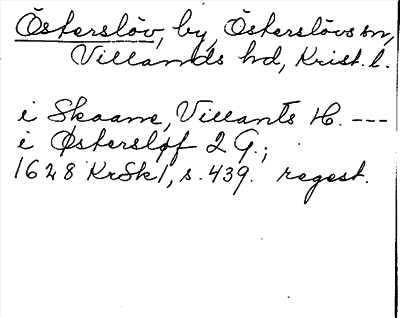 Österslöv, by, Österslövs sn,
Villands hd, Krist. l.
i Skaane, Villants H. ---
i Østersløf 2 G.;
1628 KrSk1, s. 439. regest.